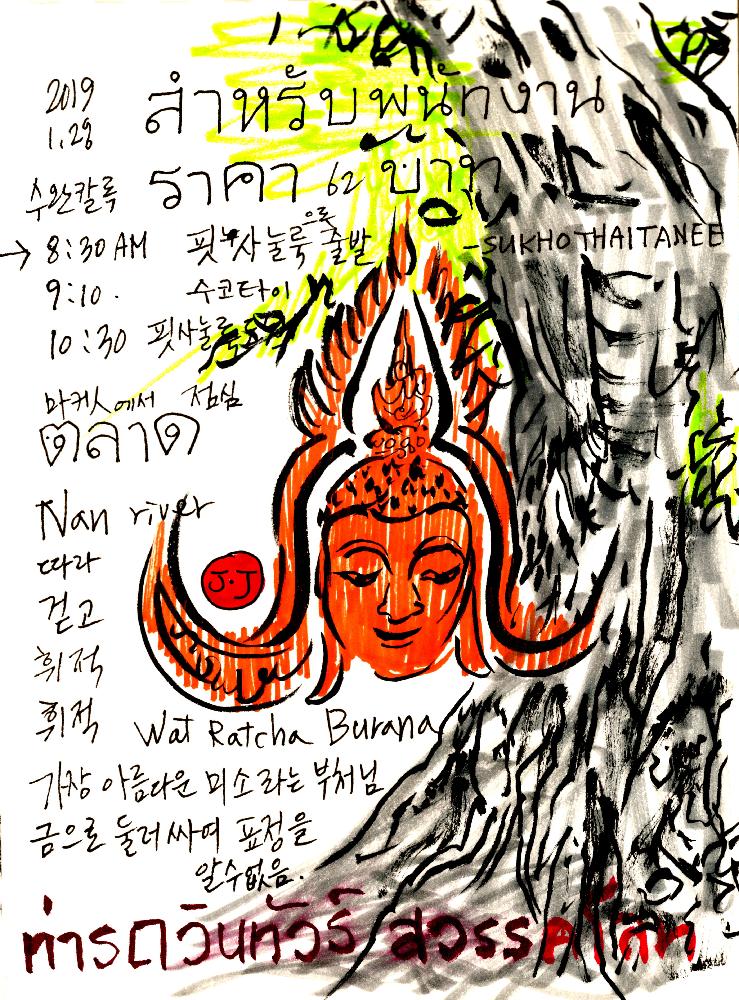 2019
1.28
สำหรับพนักงาน
ราคา 62 บ้าท
수완칼룩
→ 8:30 AM 핏사눌룩으로 출발
-SUKHOTHAITANEE
9:10. 수코타이
10:30 핏사눌룩
마켓에서 점심
ตลาด
Nan river
따라
걷고
휘적
휘적
J.J
Wat Ratcha Burana
가장 아름다운 미소라는 부처님
금으로 둘러싸여 표정을
알수없음.
ท่ารถวินทัวร์ สวรรคโลก